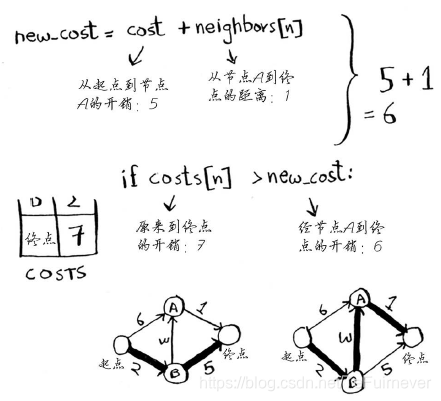 new_cost = cost + neighbors[n]
从起点到节点
A的开销：5
从节点A到终
点的距离：1
5+1
=6
if costs[n] > new_cost:
终点
7
COSTS
原来到终点
的开销：7
经节点A到终
点的开销：6
6
A
1
起点
W
终点
2
B
5
6
A
1
起点
W
终点
2
B
5